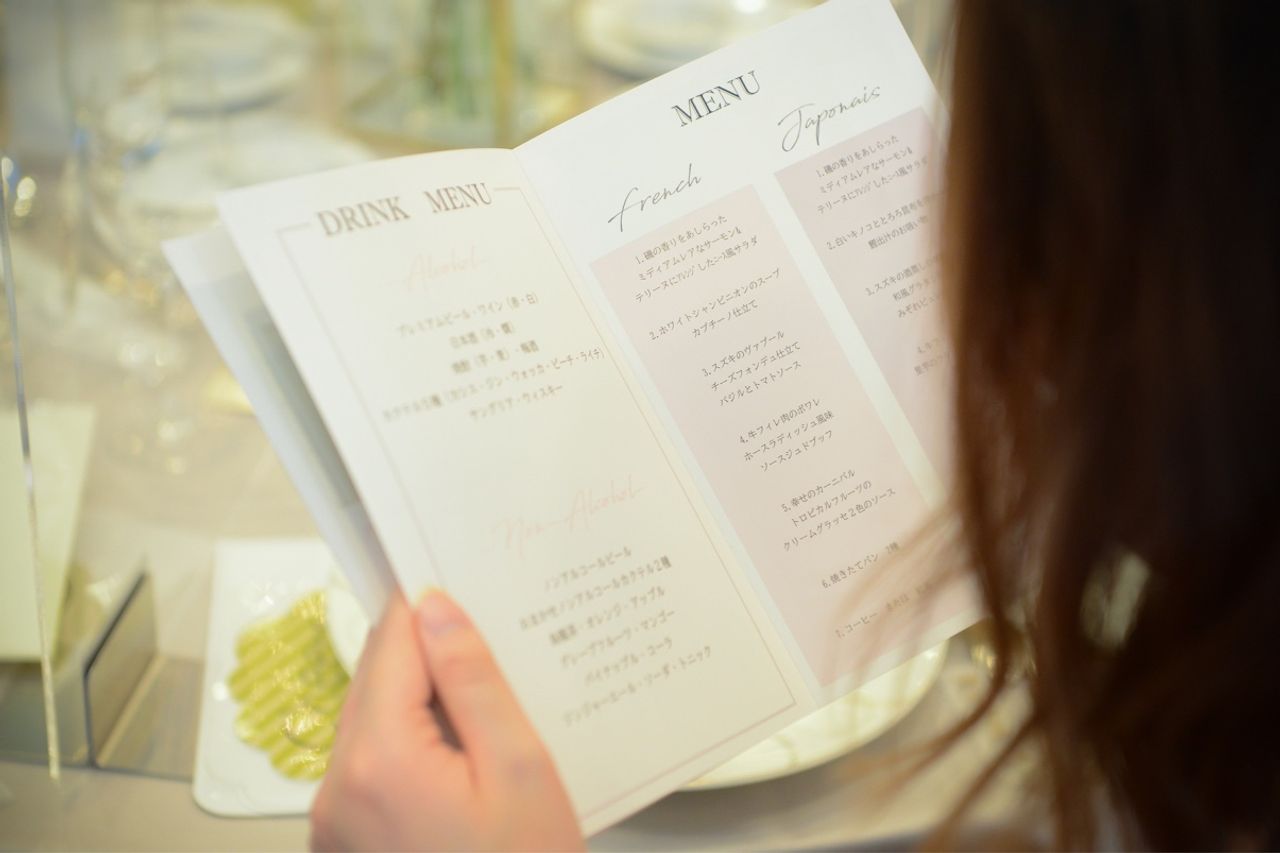 DRINK MENU
Alcohol
プレミアムビール・ワイン（赤・白）
日本酒（冷・燗）
焼酎（芋・麦）・梅酒
カクテル5種（カシス・ジン・ウォッカ・ピーチ・ライチ）
サングリア・ウィスキー
Non-Alcohol
ノンアルコールビール
おまかせノンアルコールカクテル2種
烏龍茶・オレンジ・アップル
グレープフルーツ・マンゴー
パイナップル・コーラ
ジンジャーエール・ソーダ・トニック
MENU
French
1.磯の香りをあしらった
ミディアムレアなサーモン&
テリーヌにｱﾚﾝｼﾞしたﾆｰｽ風サラダ
2.ホワイトシャンピニオンのスープ
カプチーノ仕立て
3.スズキのヴァプール
チーズフォンデュ仕立て
バジルとトマトソース
4.牛フィレ肉のポワレ
ホースラディッシュ風味
ソースジュドブッフ
5.幸せのカーニバル
トロピカルフルーツの
クリームグラッセ2色のソース
6.焼きたてパン 2種
7.コーヒー
Japonais
1.磯の香りをあしらった
ミディアムレアなサーモン&
テリーヌにｱﾚﾝｼﾞしたﾆｰｽ風サラダ
2.白いキノコととろろ昆布を
鰹出汁のお吸い物
3.スズキの酒蒸し
和風グラタ
みぞれピュ
4.牛フ